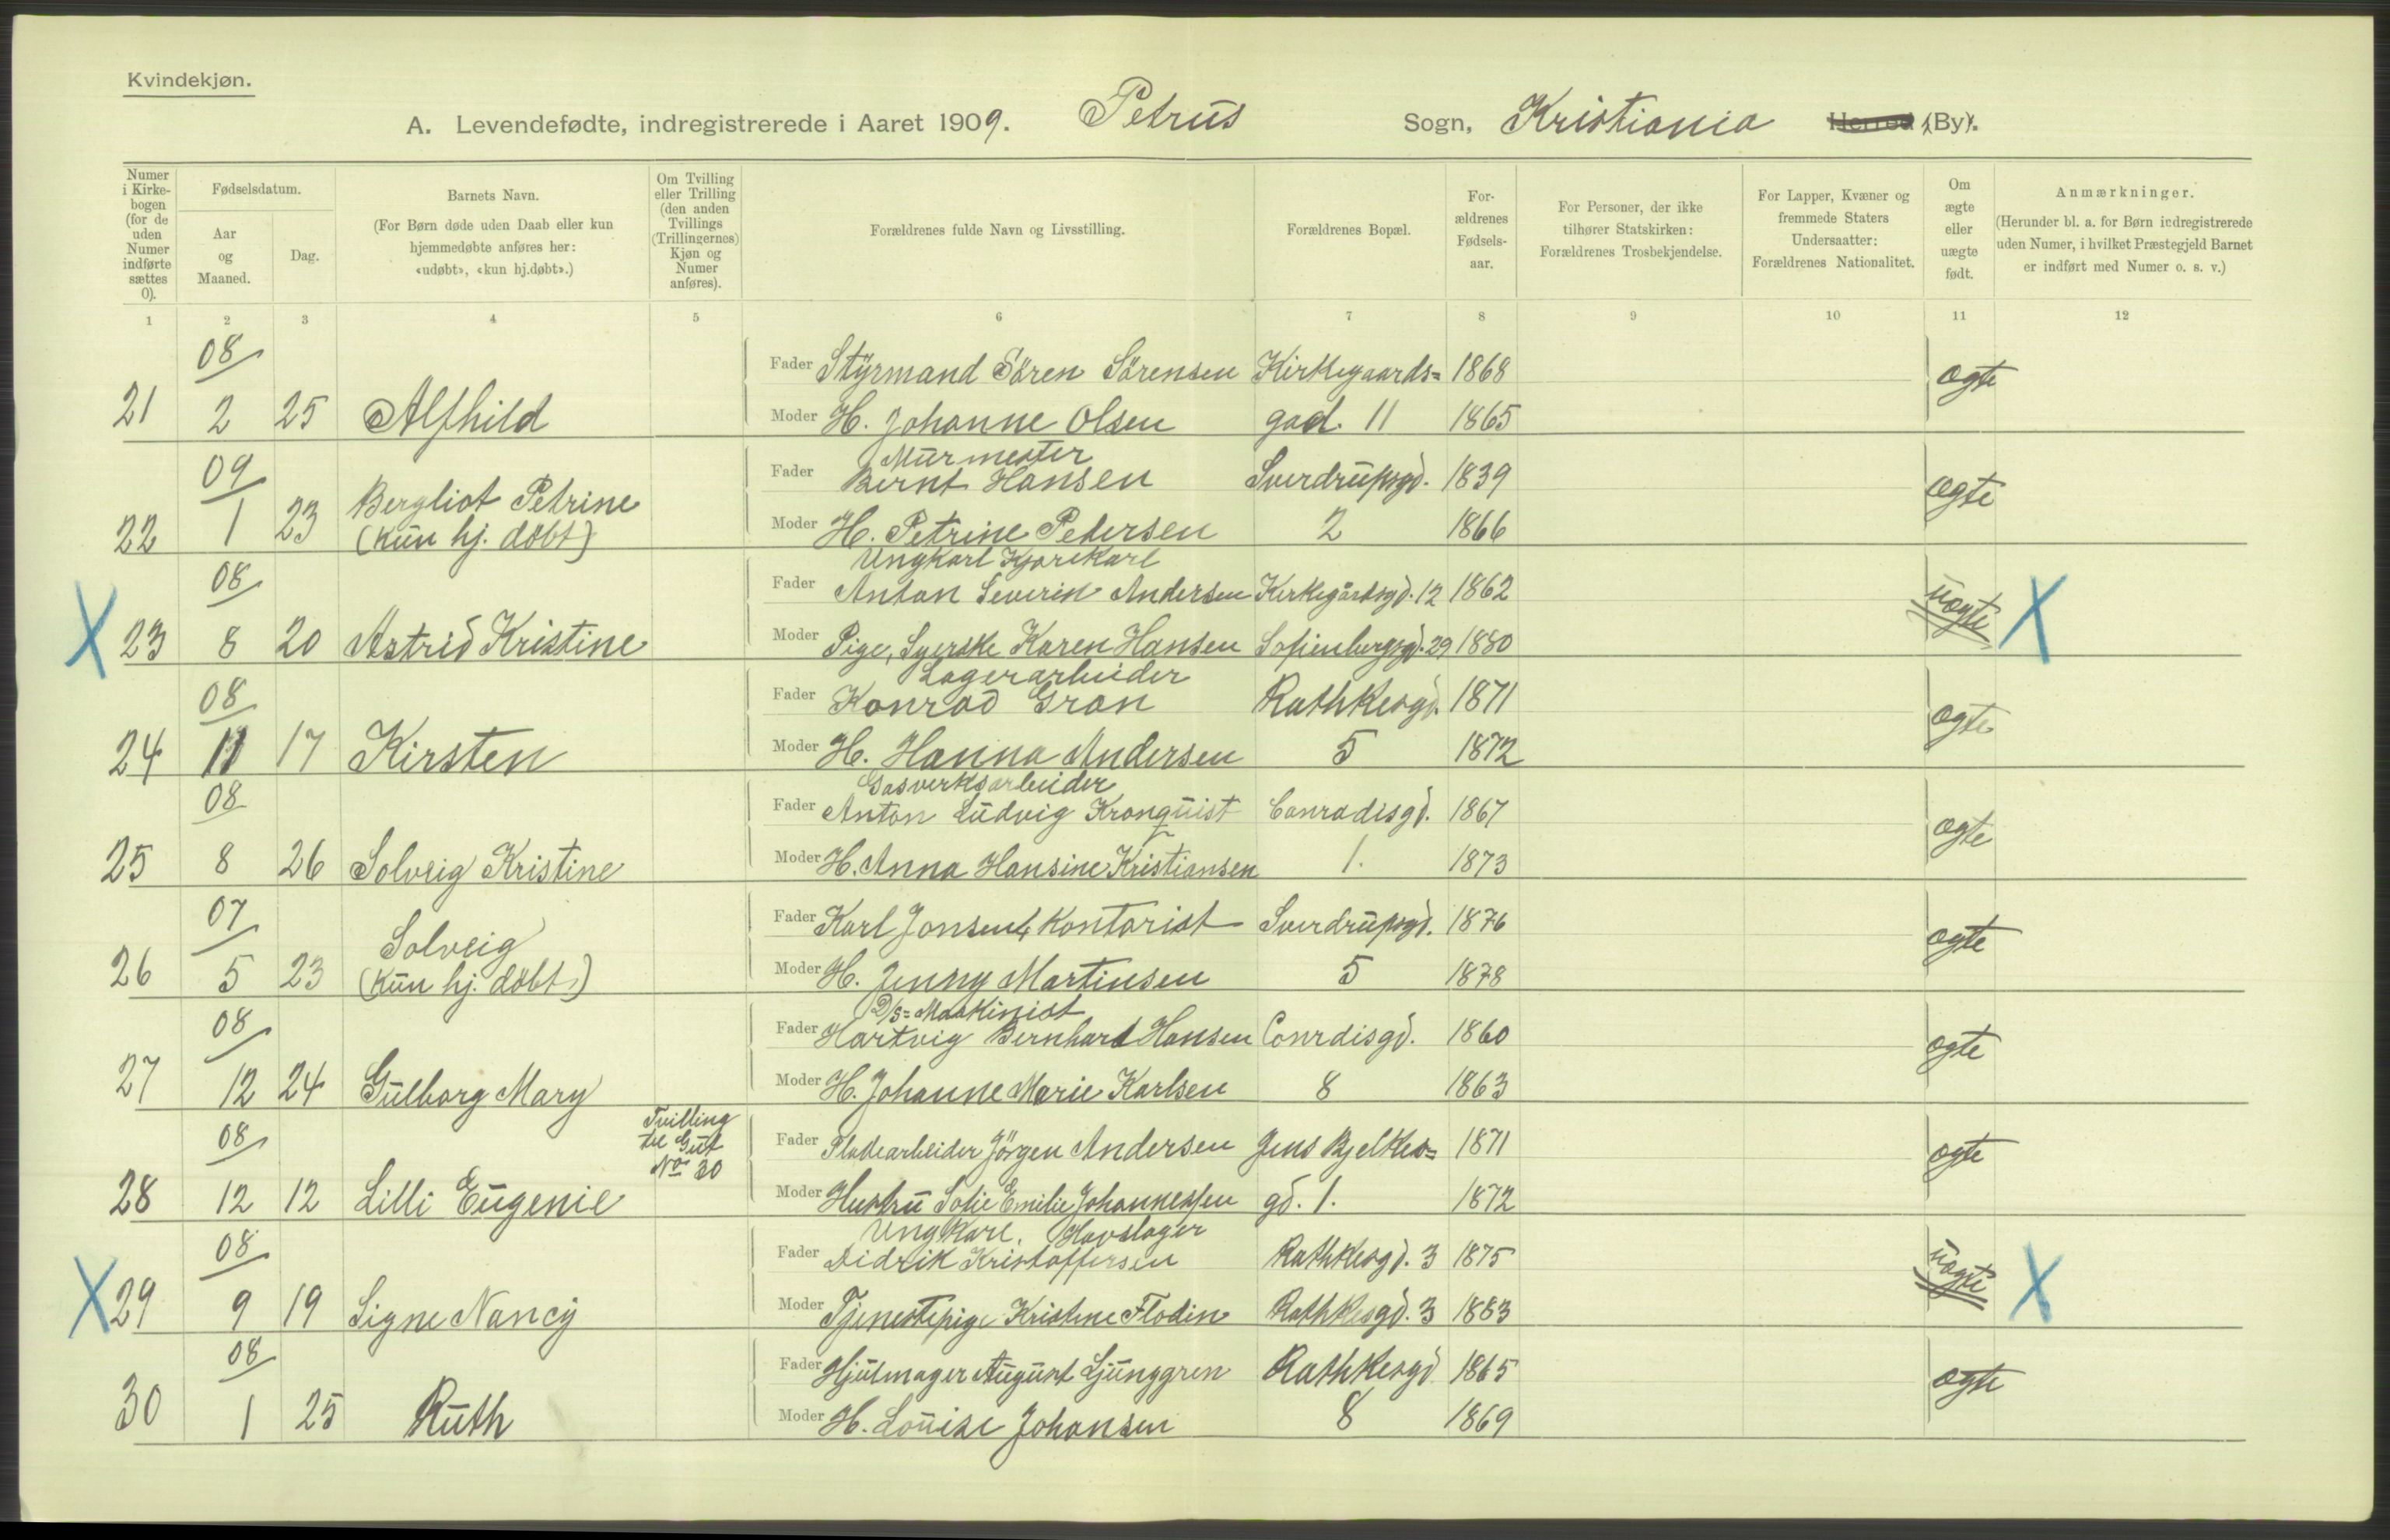 Kvindekjøn.
A. Levendefødte, indregistrerede i Aaret 1909. Petrus Sogn, Kristiania Herred (By).
Numer i Kirke-bogen (for de uden Numer indførte sættes 0).
Fødselsdatum.
Aar og Maaned.
Dag.
Barnets Navn.
(For Børn døde uden Daab eller kun hjemmedøbte anføres her: «udøbt», «kun hj.døbt».)
Om Tvilling eller Trilling (den anden Tvillings (Trillingernes) Kjøn og Numer anføres).
Forældrenes fulde Navn og Livsstilling.
Forældrenes Bopæl.
For-ældrenes Fødsels-aar.
For Personer, der ikke tilhører Statskirken: Forældrenes Trosbekjendelse.
For Lapper, Kvæner og fremmede Staters Undersaatter: Forældrenes Nationalitet.
Om ægte eller uægte født.
Anmærkninger.
(Herunder bl. a. for Børn indregistrerede uden Numer, i hvilket Præstegjeld Barnet er indført med Numer o. s. v.)
1 2 3 4 5 6 7 8 9 10 11 12
08
Fader Styrmand Sören Sörensen Kirkegaards= 1868 ægte
21 2 25 Alfhild Moder H. Johanne Olsen gad. 11 1865
09 Murmester
Fader Bernt Hansen Sverdrupsgd. 1839 ægte
22 1 23 Bergliot Petrine
(kun hj. döbt) Moder H. Petrine Pedersen 2 1866
08 Ungkarl Kjørekarl
Fader Anton Severin Andersen Kirkegårdsgd. 12 1862 uægte
X 23 8 20 Astrid Kristine Moder Pige, Syerske Karen Hansen Sofienbergsgd. 29 1880 X
08 Lagerarbeider
Fader Konrad Gran Rathkesgd. 1871 ægte
24 11 17 Kirsten Moder H. Hanna Andersen 5 1872
08 Gasverksarbeider
Fader Anton Ludvig Kronquist Conradisgd. 1867 ægte
25 8 26 Solveig Kristine Moder H. Anna Hansine Kristiansen 1. 1873
07
Fader Karl Jonsen, Kontorist Sverdrupsgd. 1876 ægte
26 5 23 Solveig
(kun hj. döbt) Moder H. Jenny Martinsen 5 1878
08 D/S= Maskinist
Fader Hartvig Bernhard Hansen Conrdisgd. 1860 ægte
27 12 24 Gulborg Mary Moder H. Johanne Marie Karlsen 8 1863
08 Tvilling
til Gut
No 30
Fader Pladearbeider Jörgen Andersen Jens Bjelkes= 1871 ægte
28 12 12 Lilli Eugenie Moder Hustru Sofie Emilie Johannessen gd. 1. 1872
08 Ungkarl, Hovslager
Fader Didrik Kristoffersen Rathkesgd. 3 1875 uægte
X 29 9 19 Signe Nancy Moder Tjenestepige Kristine Flodin Rathkesgd. 3 1883 X
08
Fader Hjulmager August Ljunggren Rathkesgd 1865 ægte
30 1 25 Ruth Moder H. Louise Johansen 8 1869